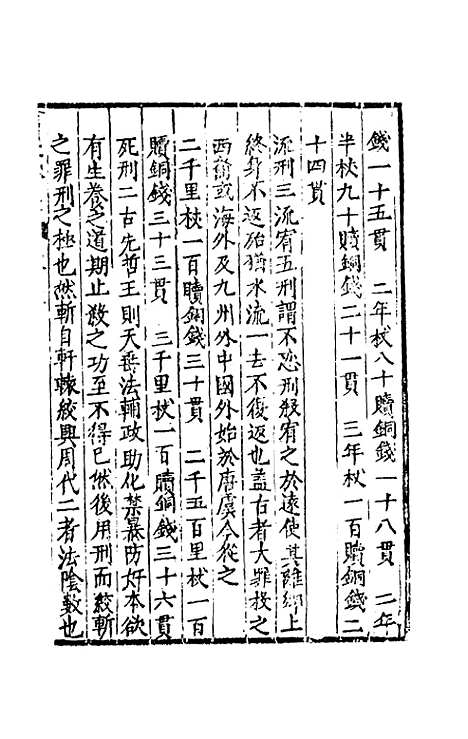 錢一十五貫　二年杖八十贖銅錢一十八貫　二年
半杖九十贖銅錢二十一貫　三年杖一百贖銅錢二
十四貫
流刑三流宥五刑謂不忍刑殺宥之於遠使其離鄉上
終身不返始猶水流一去不復返也盖古者大罪投之
西裔或海外及九州外中國外始於唐虞今從之
二千里杖一百贖銅錢三十貫　二千五百里杖一百
贖銅錢三十三貫　三千里杖一百贖銅錢三十六貫
死刑二古先哲王則天垂法輔政助化禁暴防奸本欲
有生養之道期止殺之功至不得已然後用刑而絞斬
之罪刑之極也然斬自軒轅絞興周代二者法陰數也